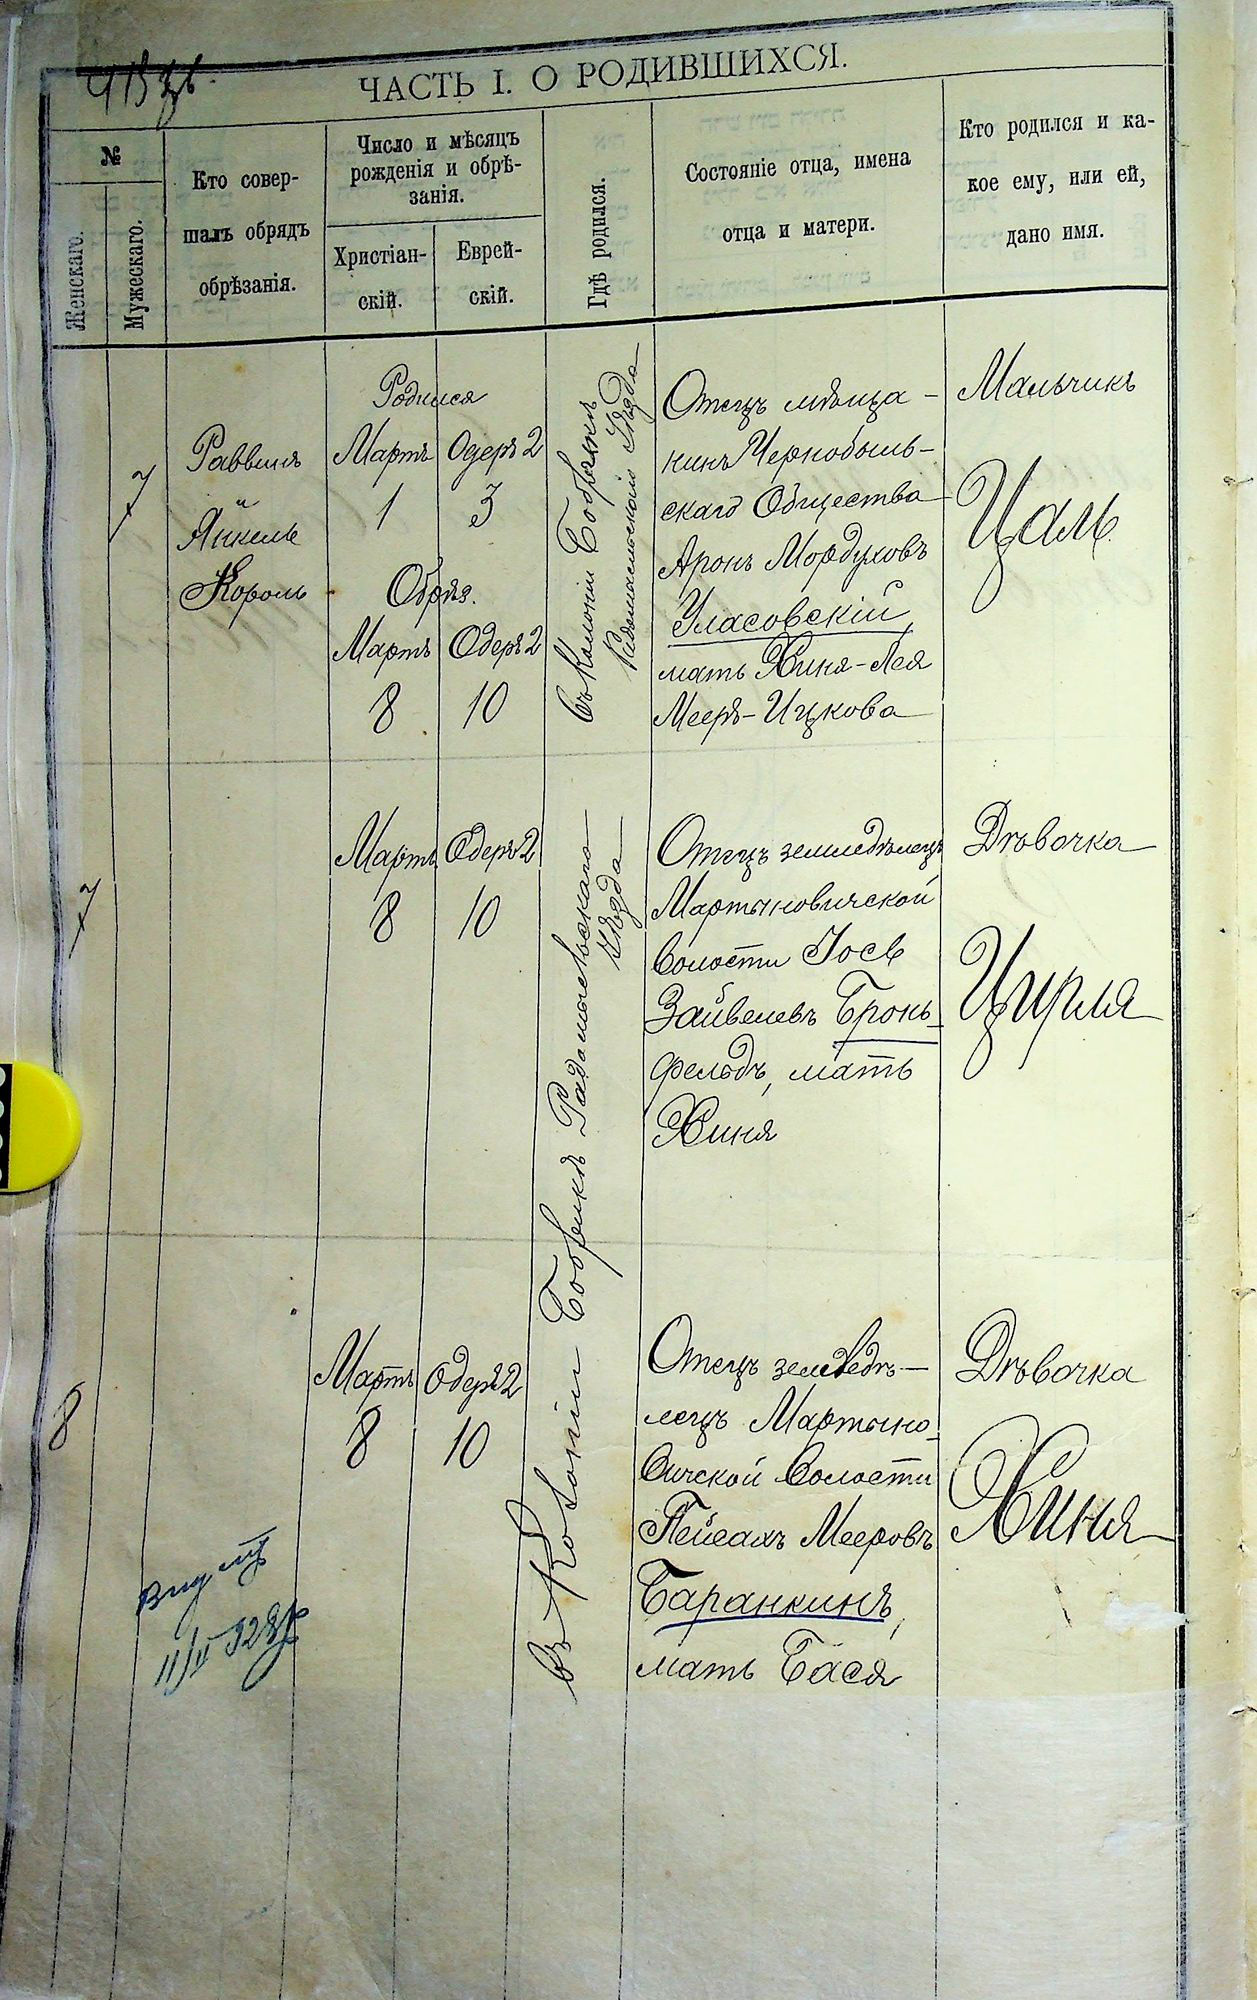 ЧАСТЬ I. О РОДИВШИХСЯ.
№
Женскаго.
Мужескаго.
Кто совер-
шалъ обрядъ
обрѣзанія.
Число и мѣсяцъ
рожденія и обрѣ-
занія.
Христіан-
скій.
Еврей-
скій.
Гдѣ родился.
Состояніе отца, имена
отца и матери.
Кто родился и ка-
кое ему, или ей,
дано имя.
7
Раввинъ
Янкель
Король
Родился
Мартъ Одеръ 2
1 3
Обрѣз.
Мартъ Одеръ 2
8 10
въ Колоніи Бобрикъ
Радомысльскаго Уѣзда
Отецъ мѣща-
нинъ Чернобыль-
скаго Общества
Аронъ Мордуховъ
Уласовскій,
мать Хиня-Лея
Мееръ-Ицкова
Мальчикъ
Цаль
7
Мартъ Одеръ 2
8 10
въ Колоніи Бобрикъ Радомысльскаго
уѣзда
Отецъ земледѣлецъ
Мартыновичской
волости Іось
Зайвелевъ Бронь-
фельдъ, мать
Хиня
Дѣвочка
Цирля
8
Мартъ Одеръ 2
8 10
Отецъ земледѣ-
лецъ Мартыно-
вичской волости
Пейсахъ Мееровъ
Баранкинъ,
мать Бася
Дѣвочка
Хиня